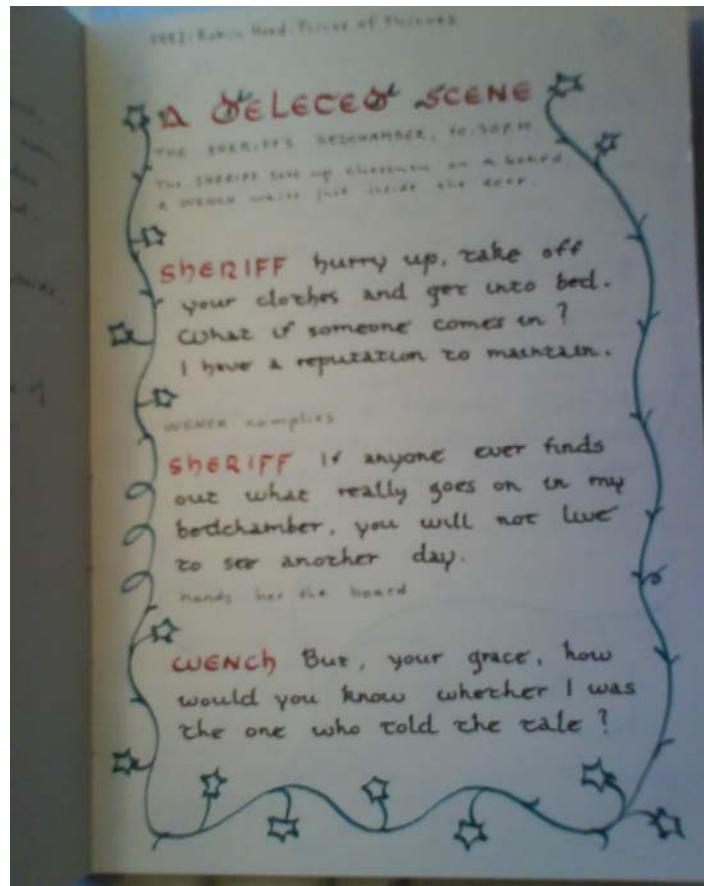 1992. Robin Hood: Prince of Thieves
A DELETED SCENE
THE SHERIFF'S BEDCHAMBER, 10.30P.M.
The SHERIFF sets up chessmen on a board
A WENCH waits just inside the door.
SHERIFF hurry up, take off
your clothes and get into bed.
What if someone comes in?
I have a reputation to maintain.
WENCH complies
SHERIFF If anyone ever finds
out what really goes on in my
bedchamber, you will not live
to see another day.
hands her the board
WENCH But, your grace, how
would you know whether I was
the one who told the tale?